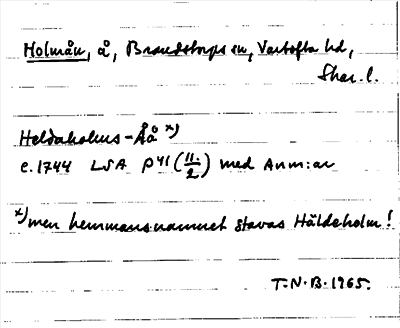 Holmån, å, Brandstorps sn, Vartofta hd,
Skar. l.
Heldaholms-Åå x)
c. 1744 LSA P41 (11:/2) med Anm:ar
x) men hemmansnamnet stavas Häldeholm!
T.N.B. 1965.